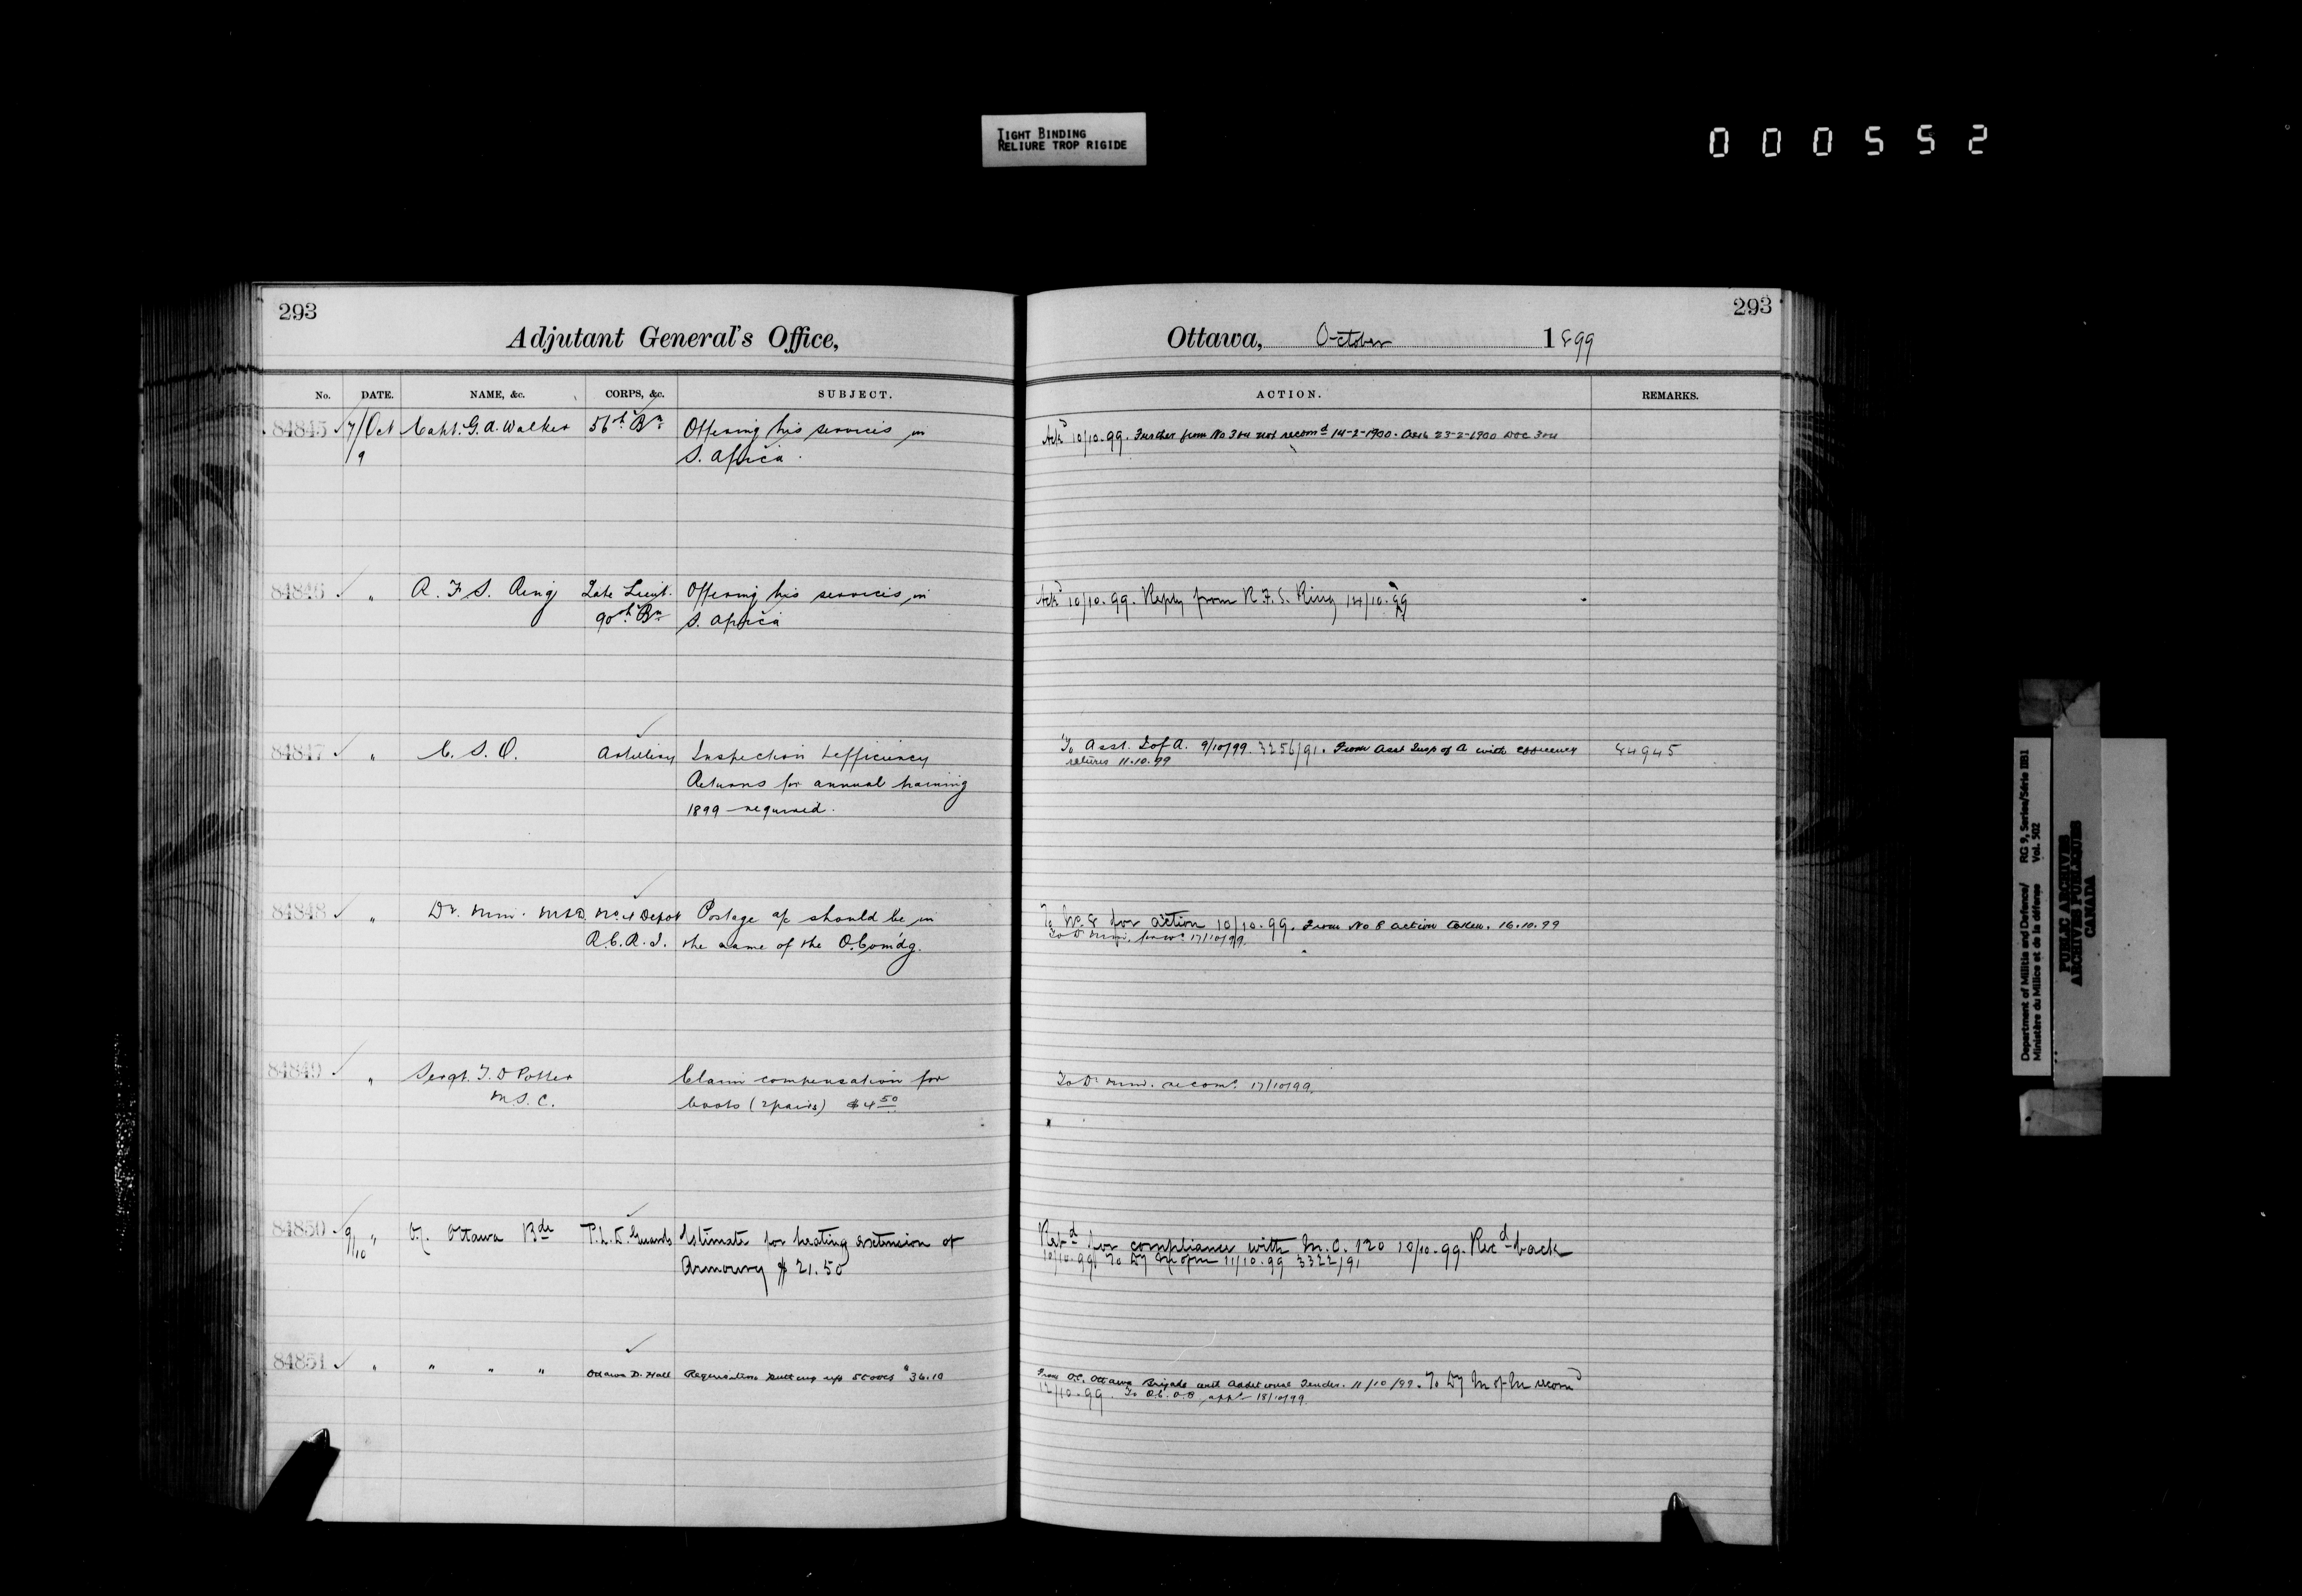 TIGHT BINDING
RELIURE TROP RIGIDE
000552
293
Adjutant General's Office,
No. DATE. NAME, &c. CORPS, &c. SUBJECT.
84845 7/9 Oct Capt. G. A. Walker 56th Bn Offering his services in
S. Africa.
84846 " R. F. S. Ring Late Lieut. Offering his services in
90th Bn S. Africa
84847 " C. S. O. Artillery Inspection & efficiency
Returns for annual training
1899 - required.
84848 " Dy. Min. M&D. No. 4 Depot Postage a/c should be in
R.C.R.I. the name of the O. Comd'g.
84849 " Sergt. T. D Potter Claim compensation for
M.S.C. boots (2 pairs) $4 50
84850 9/10 " O.C. Ottawa Bde P.L.D. Guards Estimate for heating extension of
Armoury $ 21.50
84851 " " " " Ottawa D. Hall Requisition putting up stoves $36.10
293
Ottawa, October 1899
ACTION. REMARKS.
Ackd 10/10.99. Further from No 3 not recomd 14-2-1900. Ack 23-2-1900 DOC
Ackd 10/10.99. Reply from R. F. S. Ring 14/10.99
To Asst. I of A. 9/10/99. 3256/91. From Asst Insp of A with efficiency 84945
returns 11.10.99
To No. 8 for action 10/10.99. From No 8 action taken. 16.10.99
To Dy Min. 17/10/99.
To Dy Min. recomd. 17/10/99.
Retd for compliance with M.O. 120 10/10.99. Recd back
10/10.99 To Dy M of M 11/10.99 3322/91
From O.C. Ottawa Brigade with additional tender. 11/10/99. To Dy M of M recomd
12/10.99. To O.C. O.B. appd 18/10/99.
Department of Militia and Defence/ RG 9, Series/Série IIB1
Ministère du Milice et de la défense Vol. 502
PUBLIC ARCHIVES
ARCHIVES PUBLIQUES
CANADA